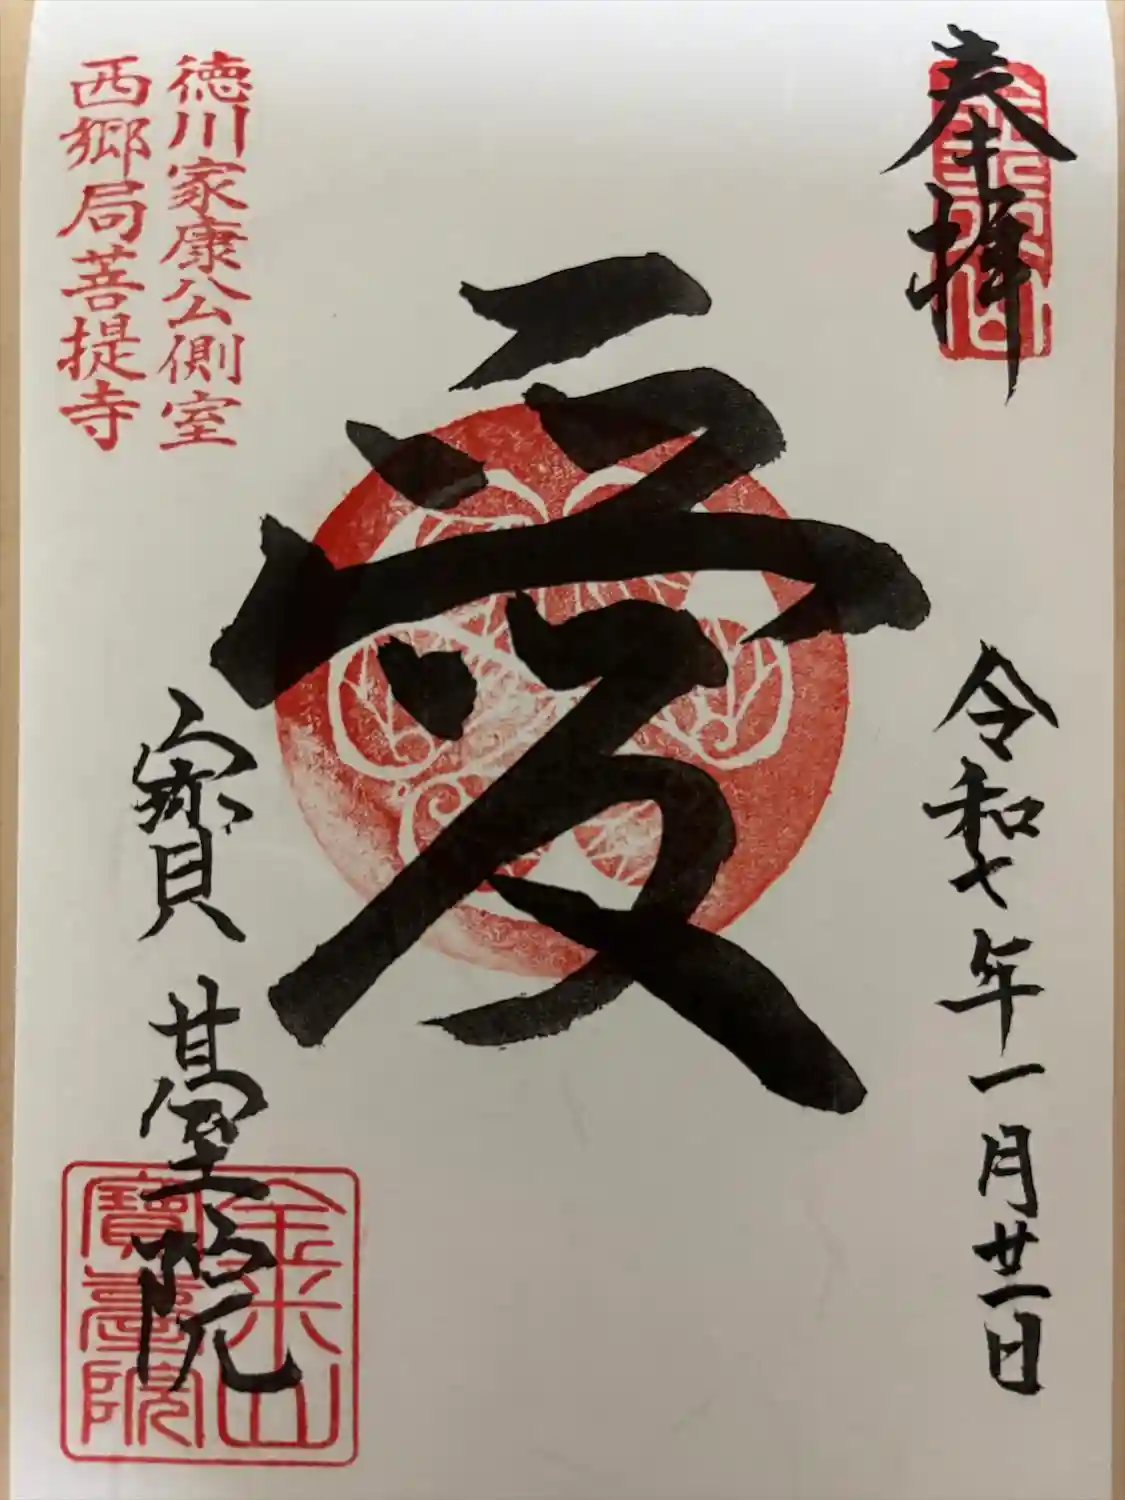 奉拝
令和七年一月廿一日
愛
寳臺院
徳川家康公側室
西郷局菩提寺
金米山
寳臺院